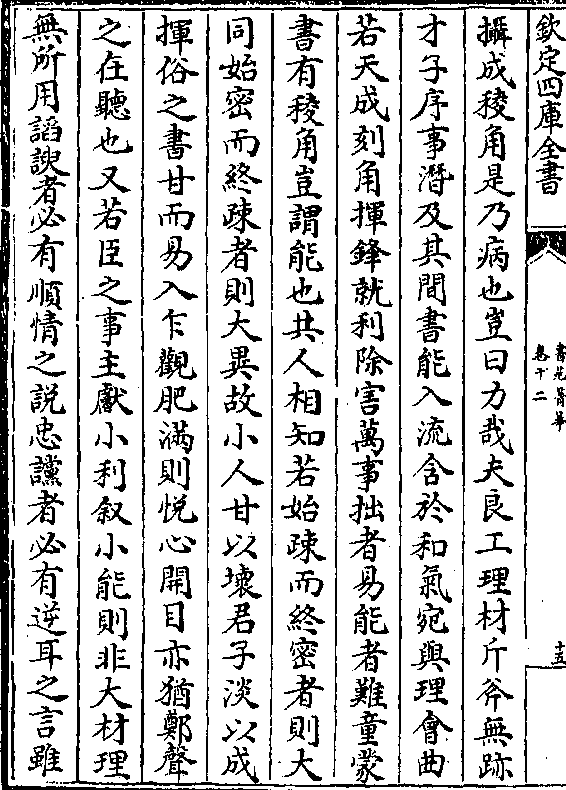 欽定四庫全書
書苑菁華
卷十二
十五
攝成稜角是乃病也豈曰力哉夫良工理材斤斧無跡
才子序事潛及其間書能入流含於和氣宛與理㑹曲
若天成刻角揮鋒就利除害萬事拙者易能者難童蒙
書有稜角豈謂能也共人相知若始疎而終密者則大
同始密而終疎者則大異故小人甘以壞君子淡以成
揮俗之書甘而易入乍觀肥滿則悅心開目亦猶鄭聲
之在聽也又若臣之事主獻小利叙小能則非大材理
無所用謟諛者必有順情之説忠讜者必有逆耳之言雖